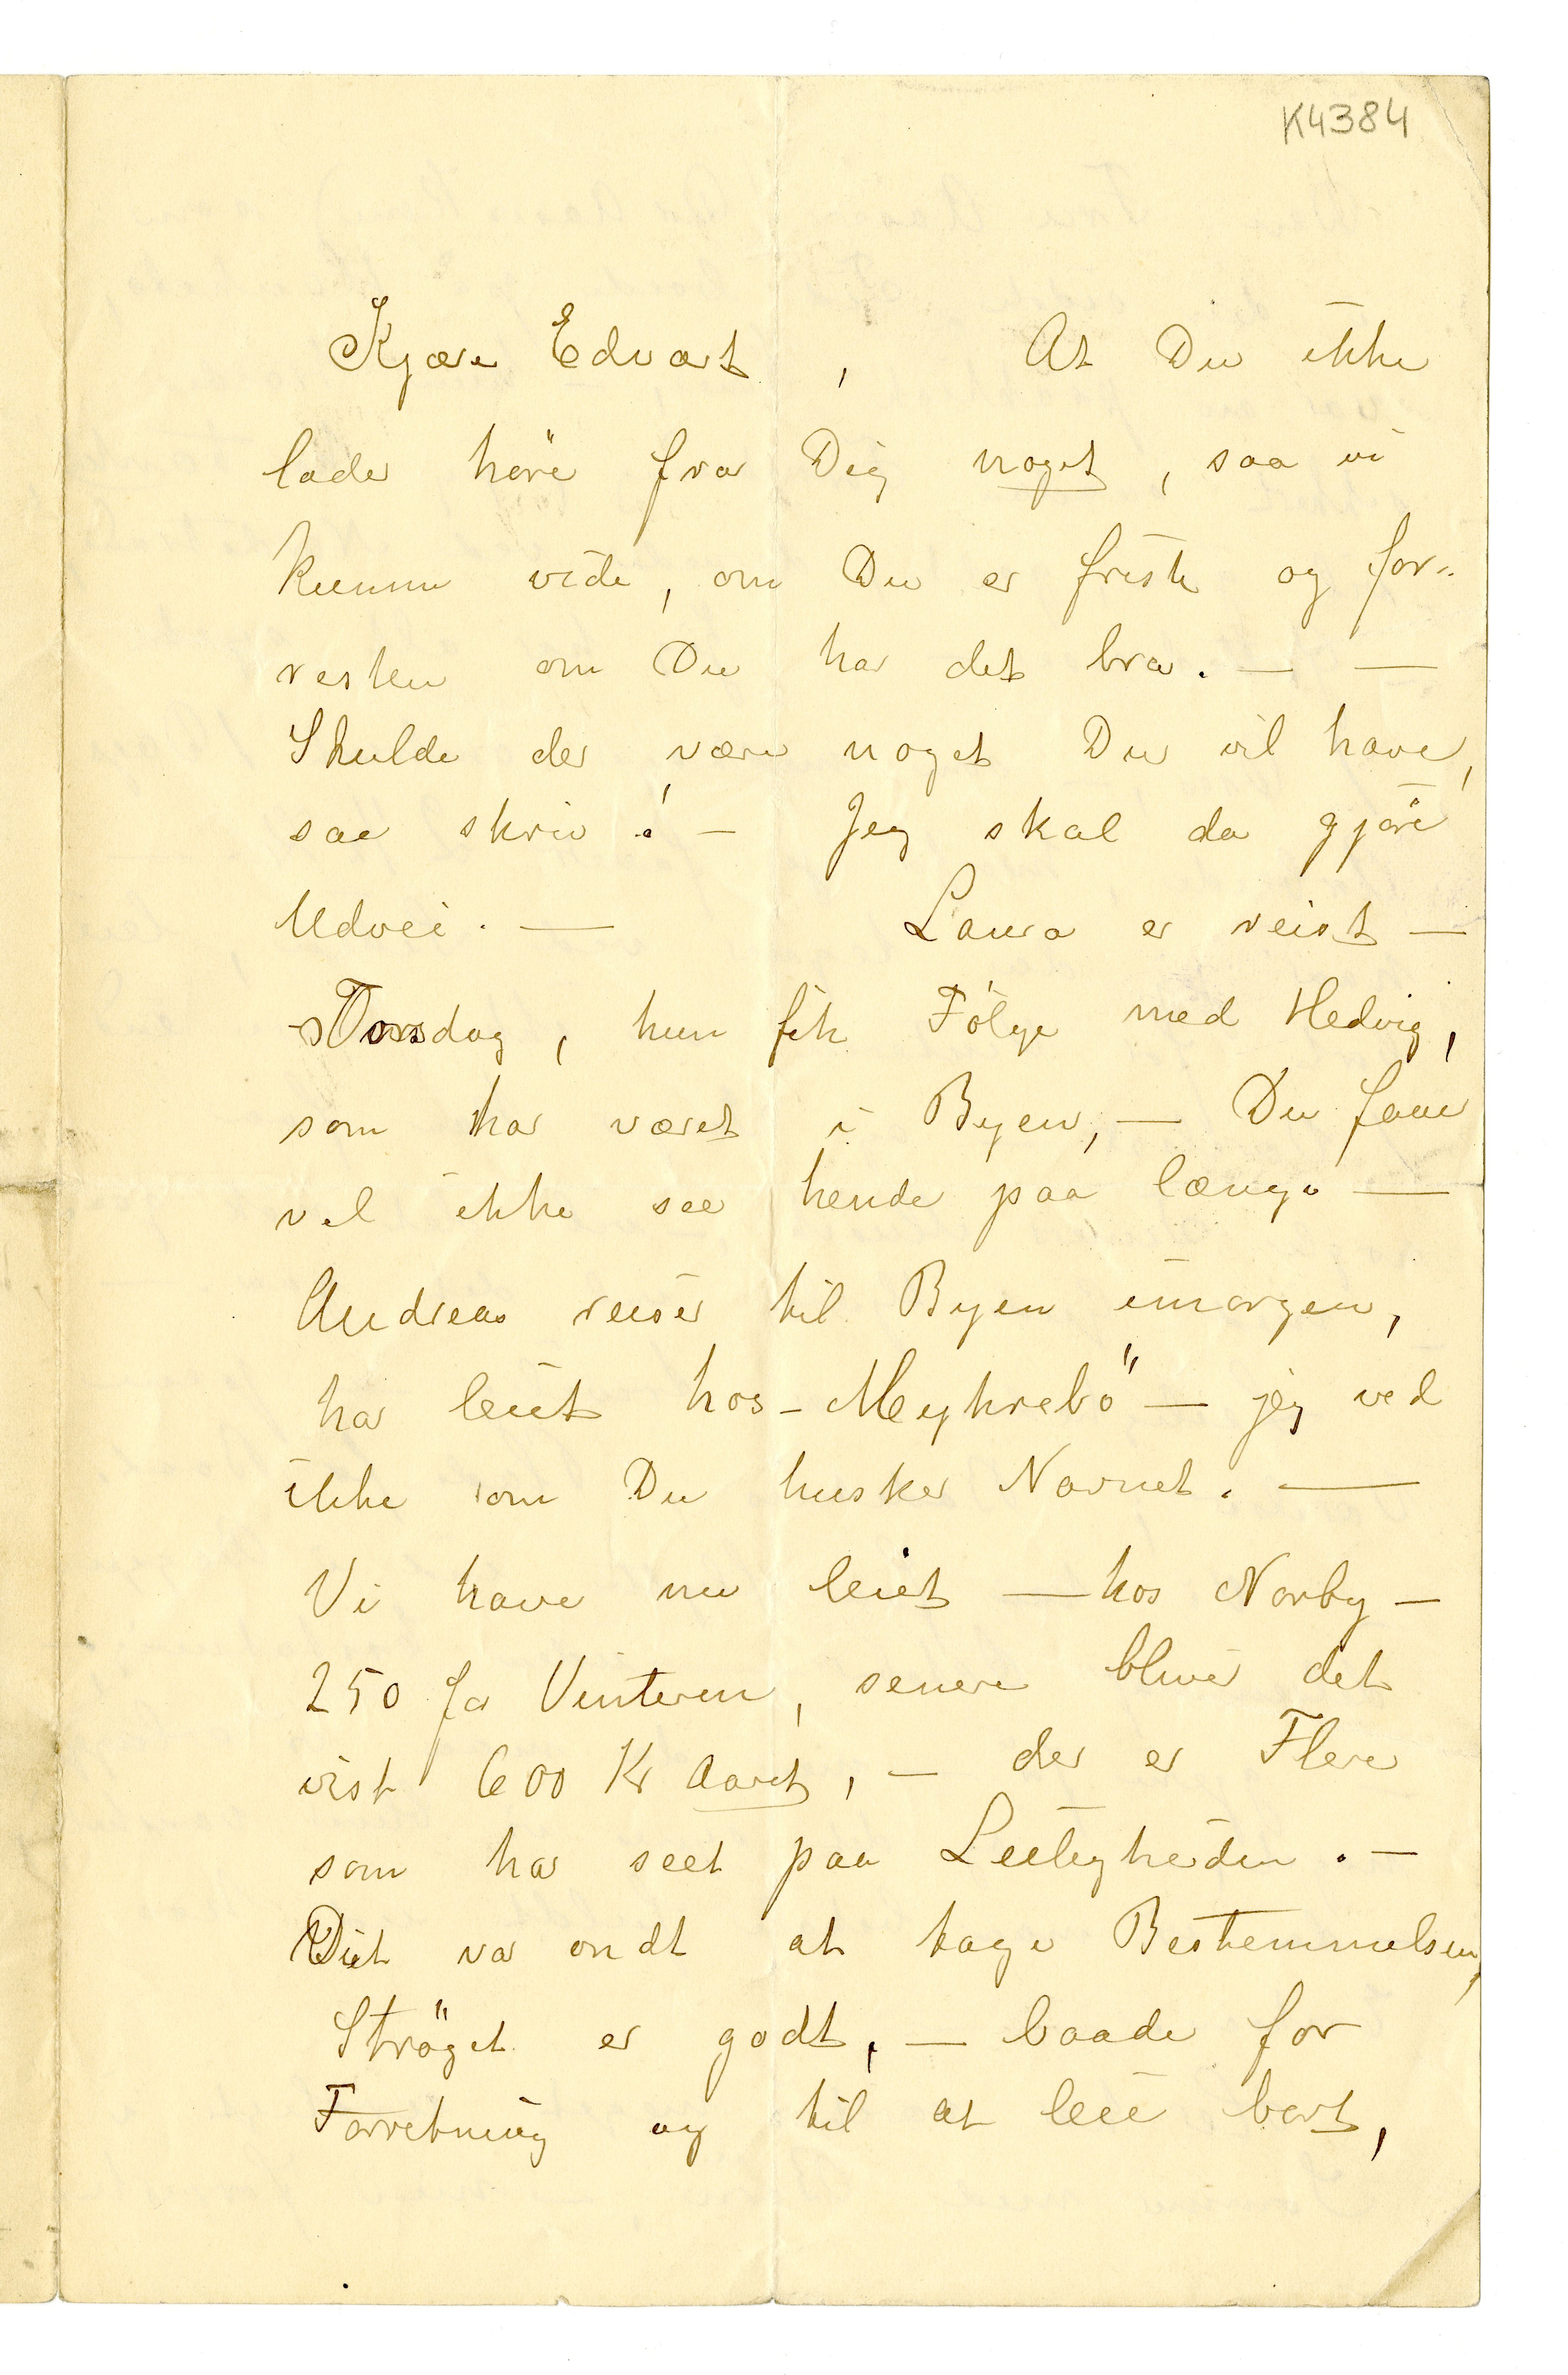 K4384
Kjære Edvart, At Du ikke
lader höre fra Dig noget, saa vi
kunne vide, om Du er frisk og for-
resten om Du har det bra. — —
Skulde der være noget Du vil have,
saa skriv! — Jeg skal da gjöre
Udvei. — Laura er reist —
Torsdag, hun fik Fölge med Hedvig,
som har været i Byen, — Du faaer
vel ikke see hende paa længe —
Andreas reiser til Byen imorgen,
har leiet hos – Meyhrebö — jeg ved
ikke om Du husker Navnet. —
Vi have nu leiet — hos Norby —
250 for Vinteren, senere bliver det
vist 600 Kr Aaret, — der er Flere
som har seet paa Leiligheden. —
Det var ondt at tage Bestemmelsen,
Ströget er godt, — baade for
Forretning og til at leie bort,